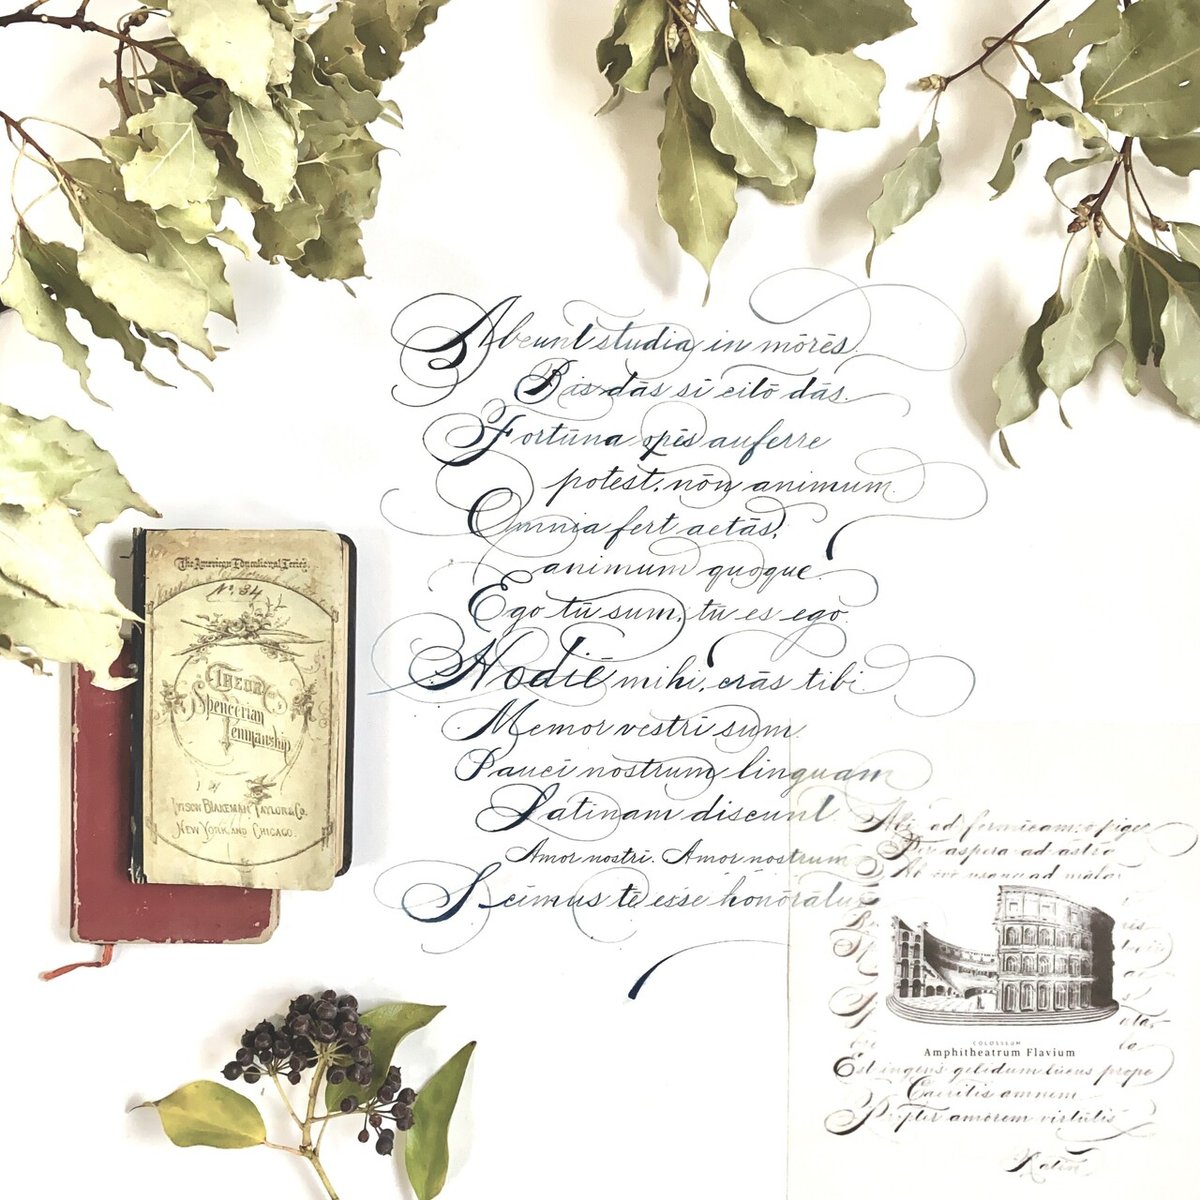 Abeunt studia in mōrēs.
Bis dās sī citō dās.
Fortūna opēs auferre
potest, nōn animum.
Omnia fert aetās,
animum quoque.
Ego tū sum, tū es ego.
Hodiē mihi, crās tibi.
Memor vestrī sum.
Paucī nostrum linguam
Latinam discunt
Amor nostri. Amor nostrum
Scīmus tē esse honōrātum
The American Educational Series.
No. 34
Theory
Spencerian
Penmanship
Ivison Blakeman Taylor & Co.
New York and Chicago.
ad formicam, ō piger
Per aspera ad astra
Ab ōvō usque ad māla
COLOSSEUM
Amphitheatrum Flavium
Est ingens gelidum lūcus prope
Caeritis amnem
Propter amōrem virtūtis